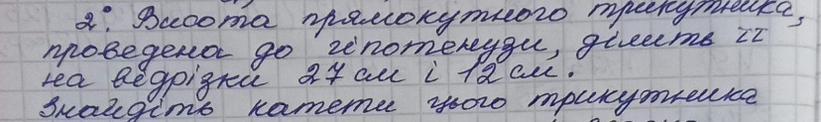 2°. Висота прямокутного трикутника,
проведена до гіпотенузи, ділить її
на відрізки 27 см і 12 см.
Знайдіть катети цього трикутника